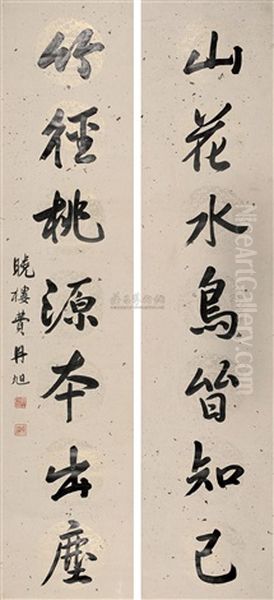 山花水鳥皆知己
竹徑桃源本出塵
曉樓費丹旭